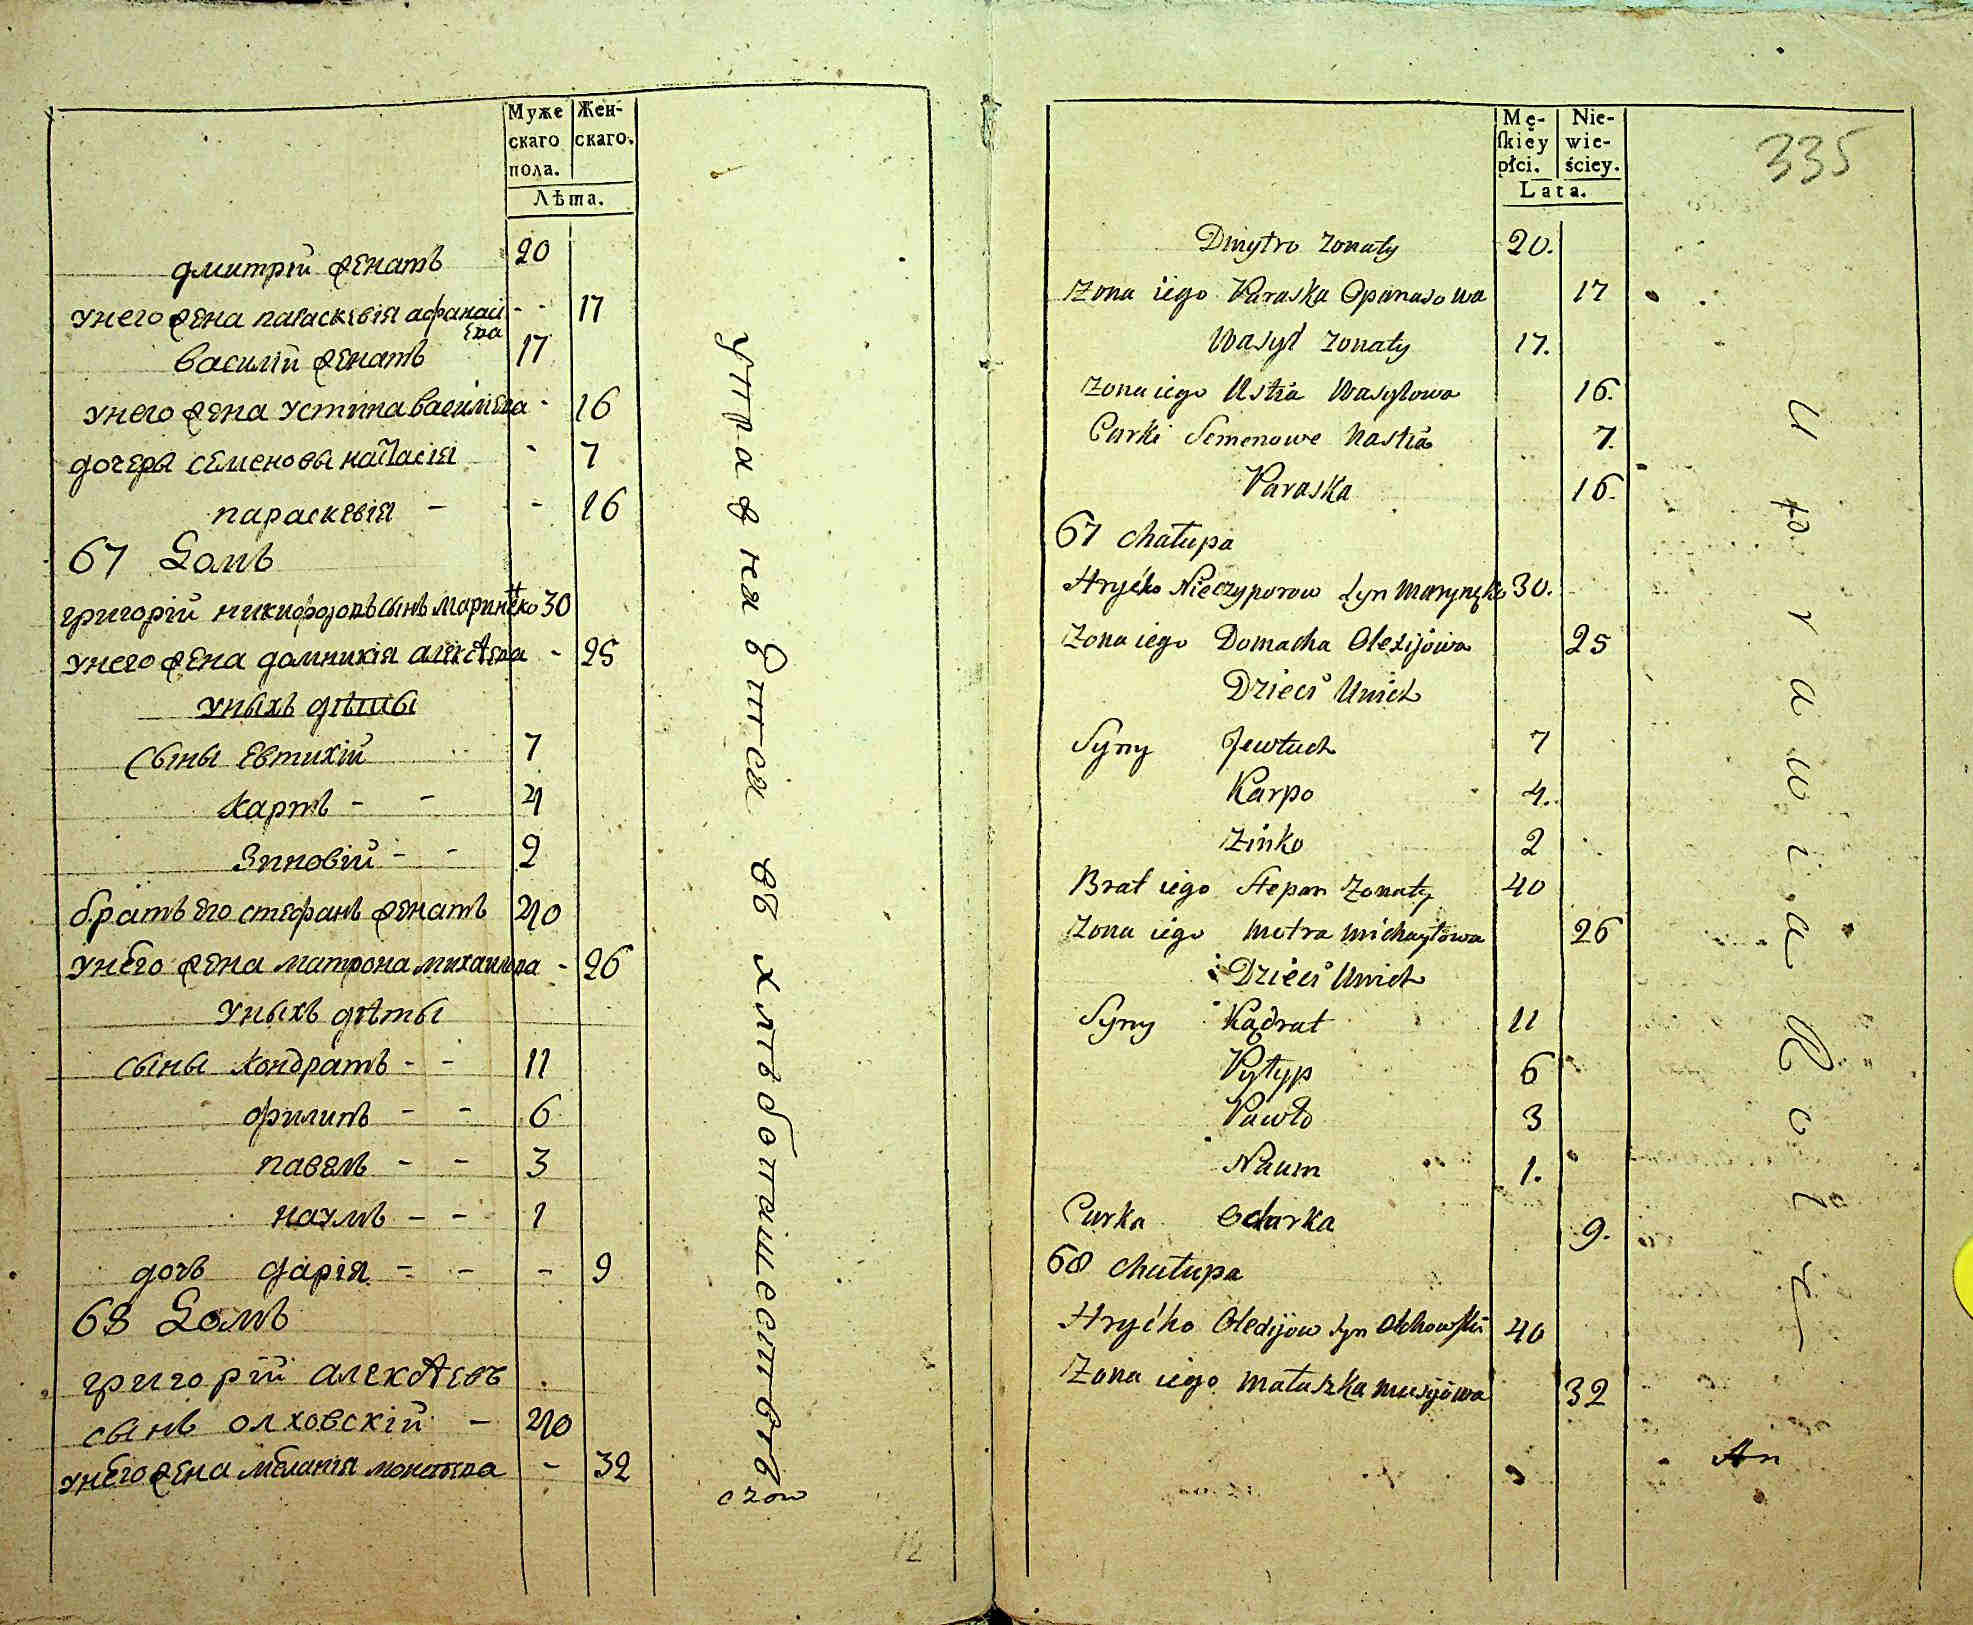 Муже
скаго
пола.
Жен-
скаго.
Лѣта.
дмитрій женатъ 20
унего жена параскевія афанасі 17
ева
василій женатъ 17
унего жена устина васильева - 16
дочеры семеновы настасія - 7
параскевія - - 16
67 Домъ
григорій никифоровъ сынъ маринѣко 30
унего жена домникія алексѣева - 25
уныхъ дѣты
сыны евтихій 7
карпъ - - 4
Зиновій - - 2
братъ его стефанъ женатъ 40
унего жена матрона михаилова - 26
уныхъ дѣты
сыны кондратъ - - 11
филипъ - - 6
павелъ - - 3
наумъ - - 1
дочъ дарія - - - 9
68 Домъ
григорій алексѣевъ
сынъ олховскій - 40
унего жена меланія - 32
упражнявится въ хлѣбопашествѣ
czow
12
Mę-
skiey
płci.
Nie-
wie-
ściey.
Lata.
335
Dmytro Zonaty 20.
Zona iego Paraska Opanasowa 17
Wasyl Zonaty 17.
Zona iego Ustia Wasylowa 16.
Curki Semenowe Nastia 7.
Paraska 16.
67 chałupa
Hryćko Nieczyporow syn Marynęko 30.
Zona iego Domacha Olexijowa 25
Dzieci Unich
Syny Jewtuch 7
Karpo 4.
Zinko 2
Brat iego Stepan Zonaty 40
Zona iego Motra Michayłowa 26
Dzieci Unich
Syny Kądrat 11
Pyłyp 6
Pawło 3
Naum 1.
Curka Odarka 9.
68 chałupa
Hryćko Olexijow syn Olchowski 40
Zona iego Małaszka Musyjowa 32
Uprawia Rolę
An